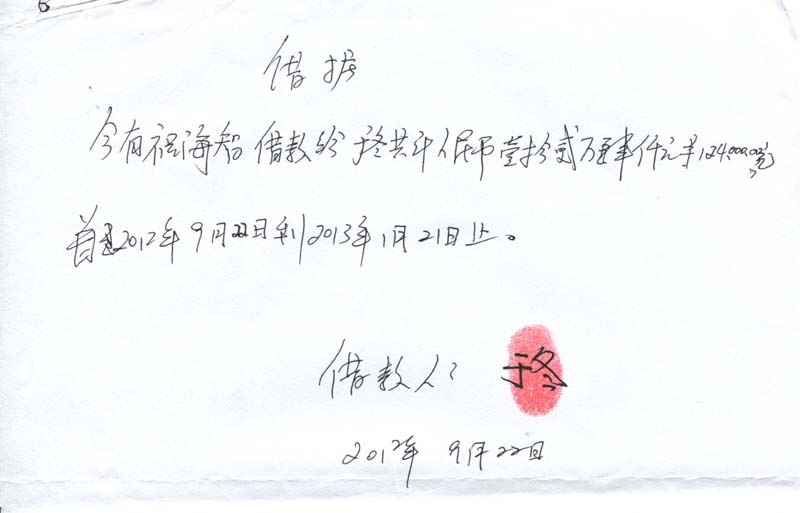 借据
今有祝海智借款给于冬共计人民币壹拾贰万肆仟元¥124,000.00元
自2012年9月22日到2013年1月21日止。
借款人: 于冬
2012年 9月22日